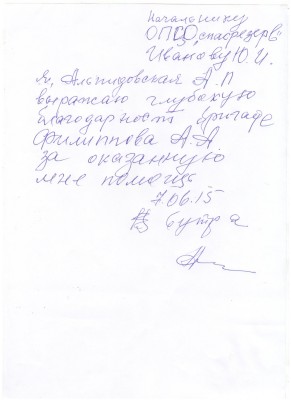 Начальнику
ОПСО, спасрезерв
Иванову Ю.И.
Я, А А.П
выражаю глубокую
благодарность бригаде
Филиппова А.А
за оказанную
мне помощь
7.06.15
утра